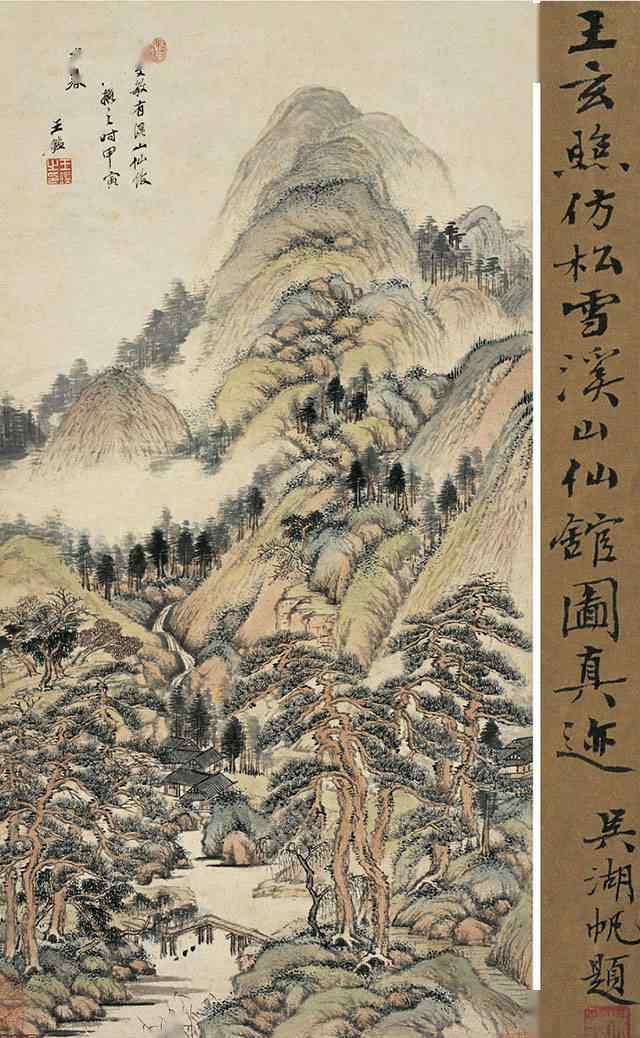 敏有溪山仙館
擬之時甲寅
王鑑
王玄照仿松雪溪山仙館圖真迹
吳湖帆題